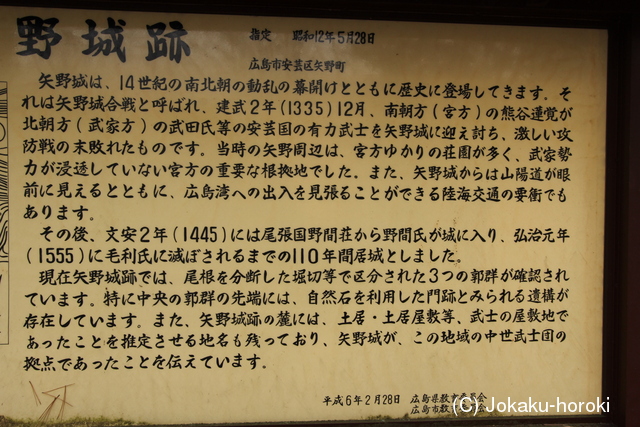 野城跡
指定 昭和12年5月28日
広島市安芸区矢野町
矢野城は、14世紀の南北朝の動乱の幕開けとともに歴史に登場してきます。そ
れは矢野城合戦と呼ばれ、建武2年(1335)12月、南朝方(宮方)の熊谷蓮覚が
北朝方(武家方)の武田氏等の安芸国の有力武士を矢野城に迎え討ち、激しい攻
防戦の末敗れたものです。当時の矢野周辺は、宮方ゆかりの荘園が多く、武家勢
力が浸透していない宮方の重要な根拠地でした。また、矢野城からは山陽道が眼
前に見えるとともに、広島湾への出入を見張ることができる陸海交通の要衝でも
あります。
その後、文安2年(1445)には尾張国野間荘から野間氏が城に入り、弘治元年
(1555)に毛利氏に滅ぼされるまでの110年間居城としました。
現在矢野城跡では、尾根を分断した堀切等で区分された3つの郭群が確認され
ています。特に中央の郭群の先端には、自然石を利用した門跡とみられる遺構が
存在しています。また、矢野城跡の麓には、土居・土居屋敷等、武士の屋敷地で
あったことを推定させる地名も残っており、矢野城が、この地域の中世武士団の
拠点であったことを伝えています。
平成6年2月28日 広島県教育委員会
広島市教育委員会
(C) Jokaku-horoki